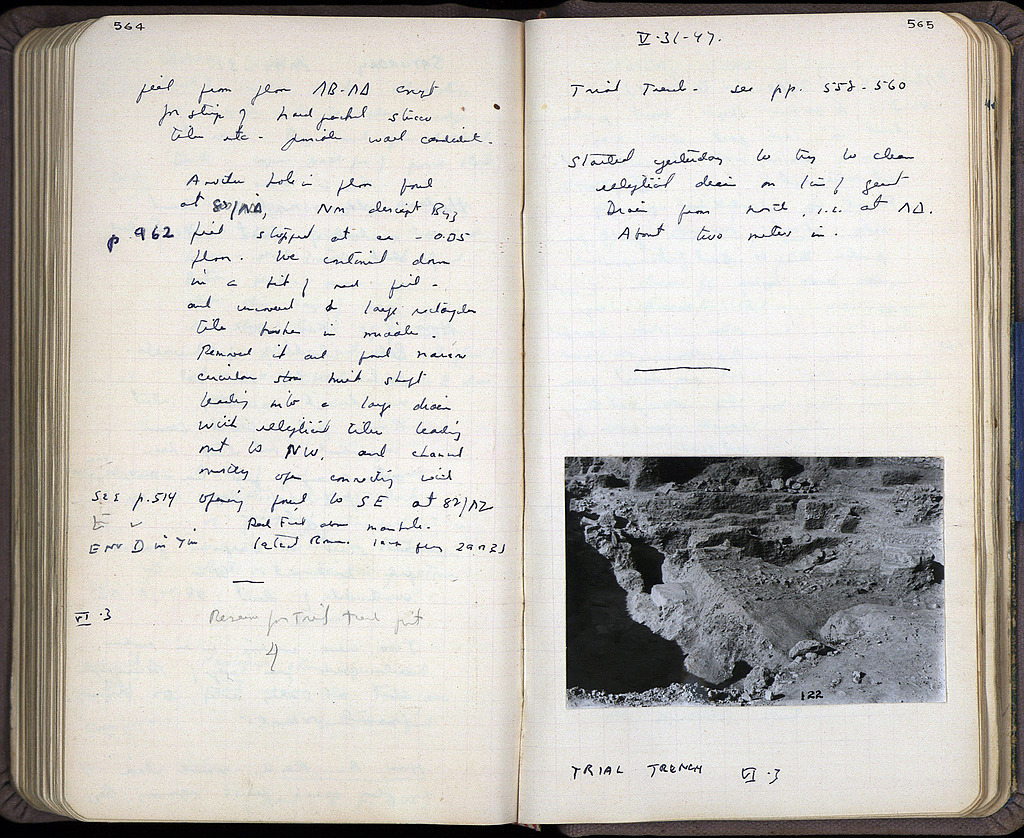 564
from floor AB-ΛΔ except
for strip of hard packed stucco
tiles etc - possible wall
Another hole in floor found
at 83/ΛΔ,
p. 962 field stopped at ca - 0.05
floor. We continued down
in a bit of red fill -
and uncovered a large rectangular
tile broken in middle.
Removed it and found narrow
circular stone built shaft
leading into a large drain
with elliptical tiles leading
out to NW, and channel
open connecting with
See p. 514 opening found to SE at 82/ΛΖ
Red Fill above manhole.
latest Roman
VI·3 Reserve for Trial Trench
4
565
V·31-47.
Trial Trench - see pp. 558-560
Started yesterday to try to clean
elliptical drain on line of great
Drain from north, i.e. at ΛΔ.
About two meters in.
122
TRIAL TRENCH VI·3